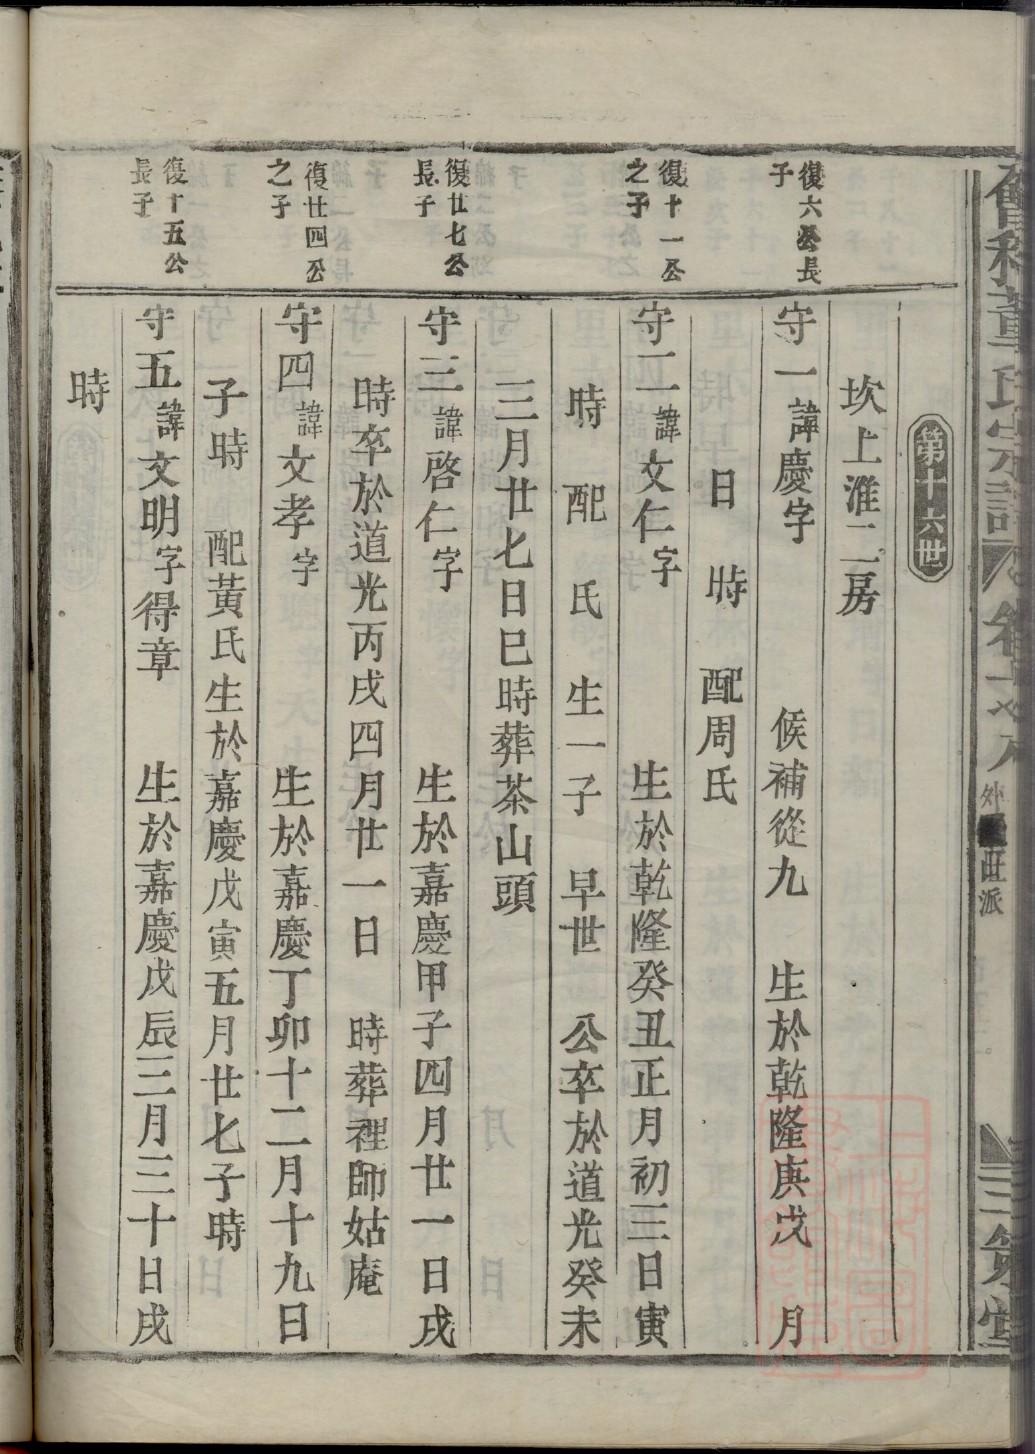 董氏宗譜
外
派
第十六世
坎上淮二房
復六公長
子
守一諱慶字 候補從九 生於乾隆庚戌 月
日 時 配周氏
復十一公
之子
守二諱文仁字 生於乾隆癸丑正月初三日寅
時 配 氏 生一子 早世 公卒於道光癸未
三月廿七日巳時葬茶山頭
復廿七公
長子
守三諱啓仁字 生於嘉慶甲子四月廿一日戌
時卒於道光丙戌四月廿一日 時葬裡師姑庵
復廿四公
之子
守四諱文孝字 生於嘉慶丁卯十二月十九日
子時 配黃氏生於嘉慶戊寅五月廿七子時
復十五公
長子
守五諱文明字得章 生於嘉慶戊辰三月三十日戌
時